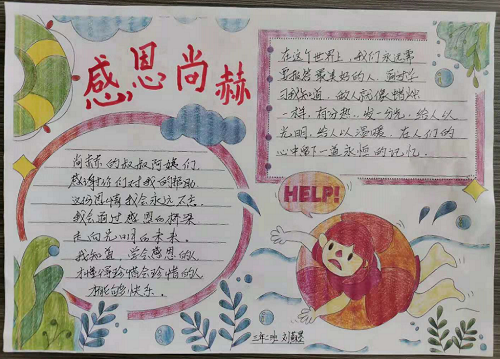 感恩尚赫
在这个世界上,我们永远需
要报答最美好的人,通过学
习我知道,做人就像蜡烛
一样,有分热,发一分光,给人以
光明,给人以温暖,在人们的
心中留下一道永恒的记忆.
尚赫的叔叔阿姨们,
感谢你们对我的帮助
这份恩情我会永远不忘.
我会通过感恩的桥梁
走向光明的未来.
我知道,学会感恩的人
才懂得珍惜会珍惜的人
才能够快乐.
HELP!
三年二班 刘